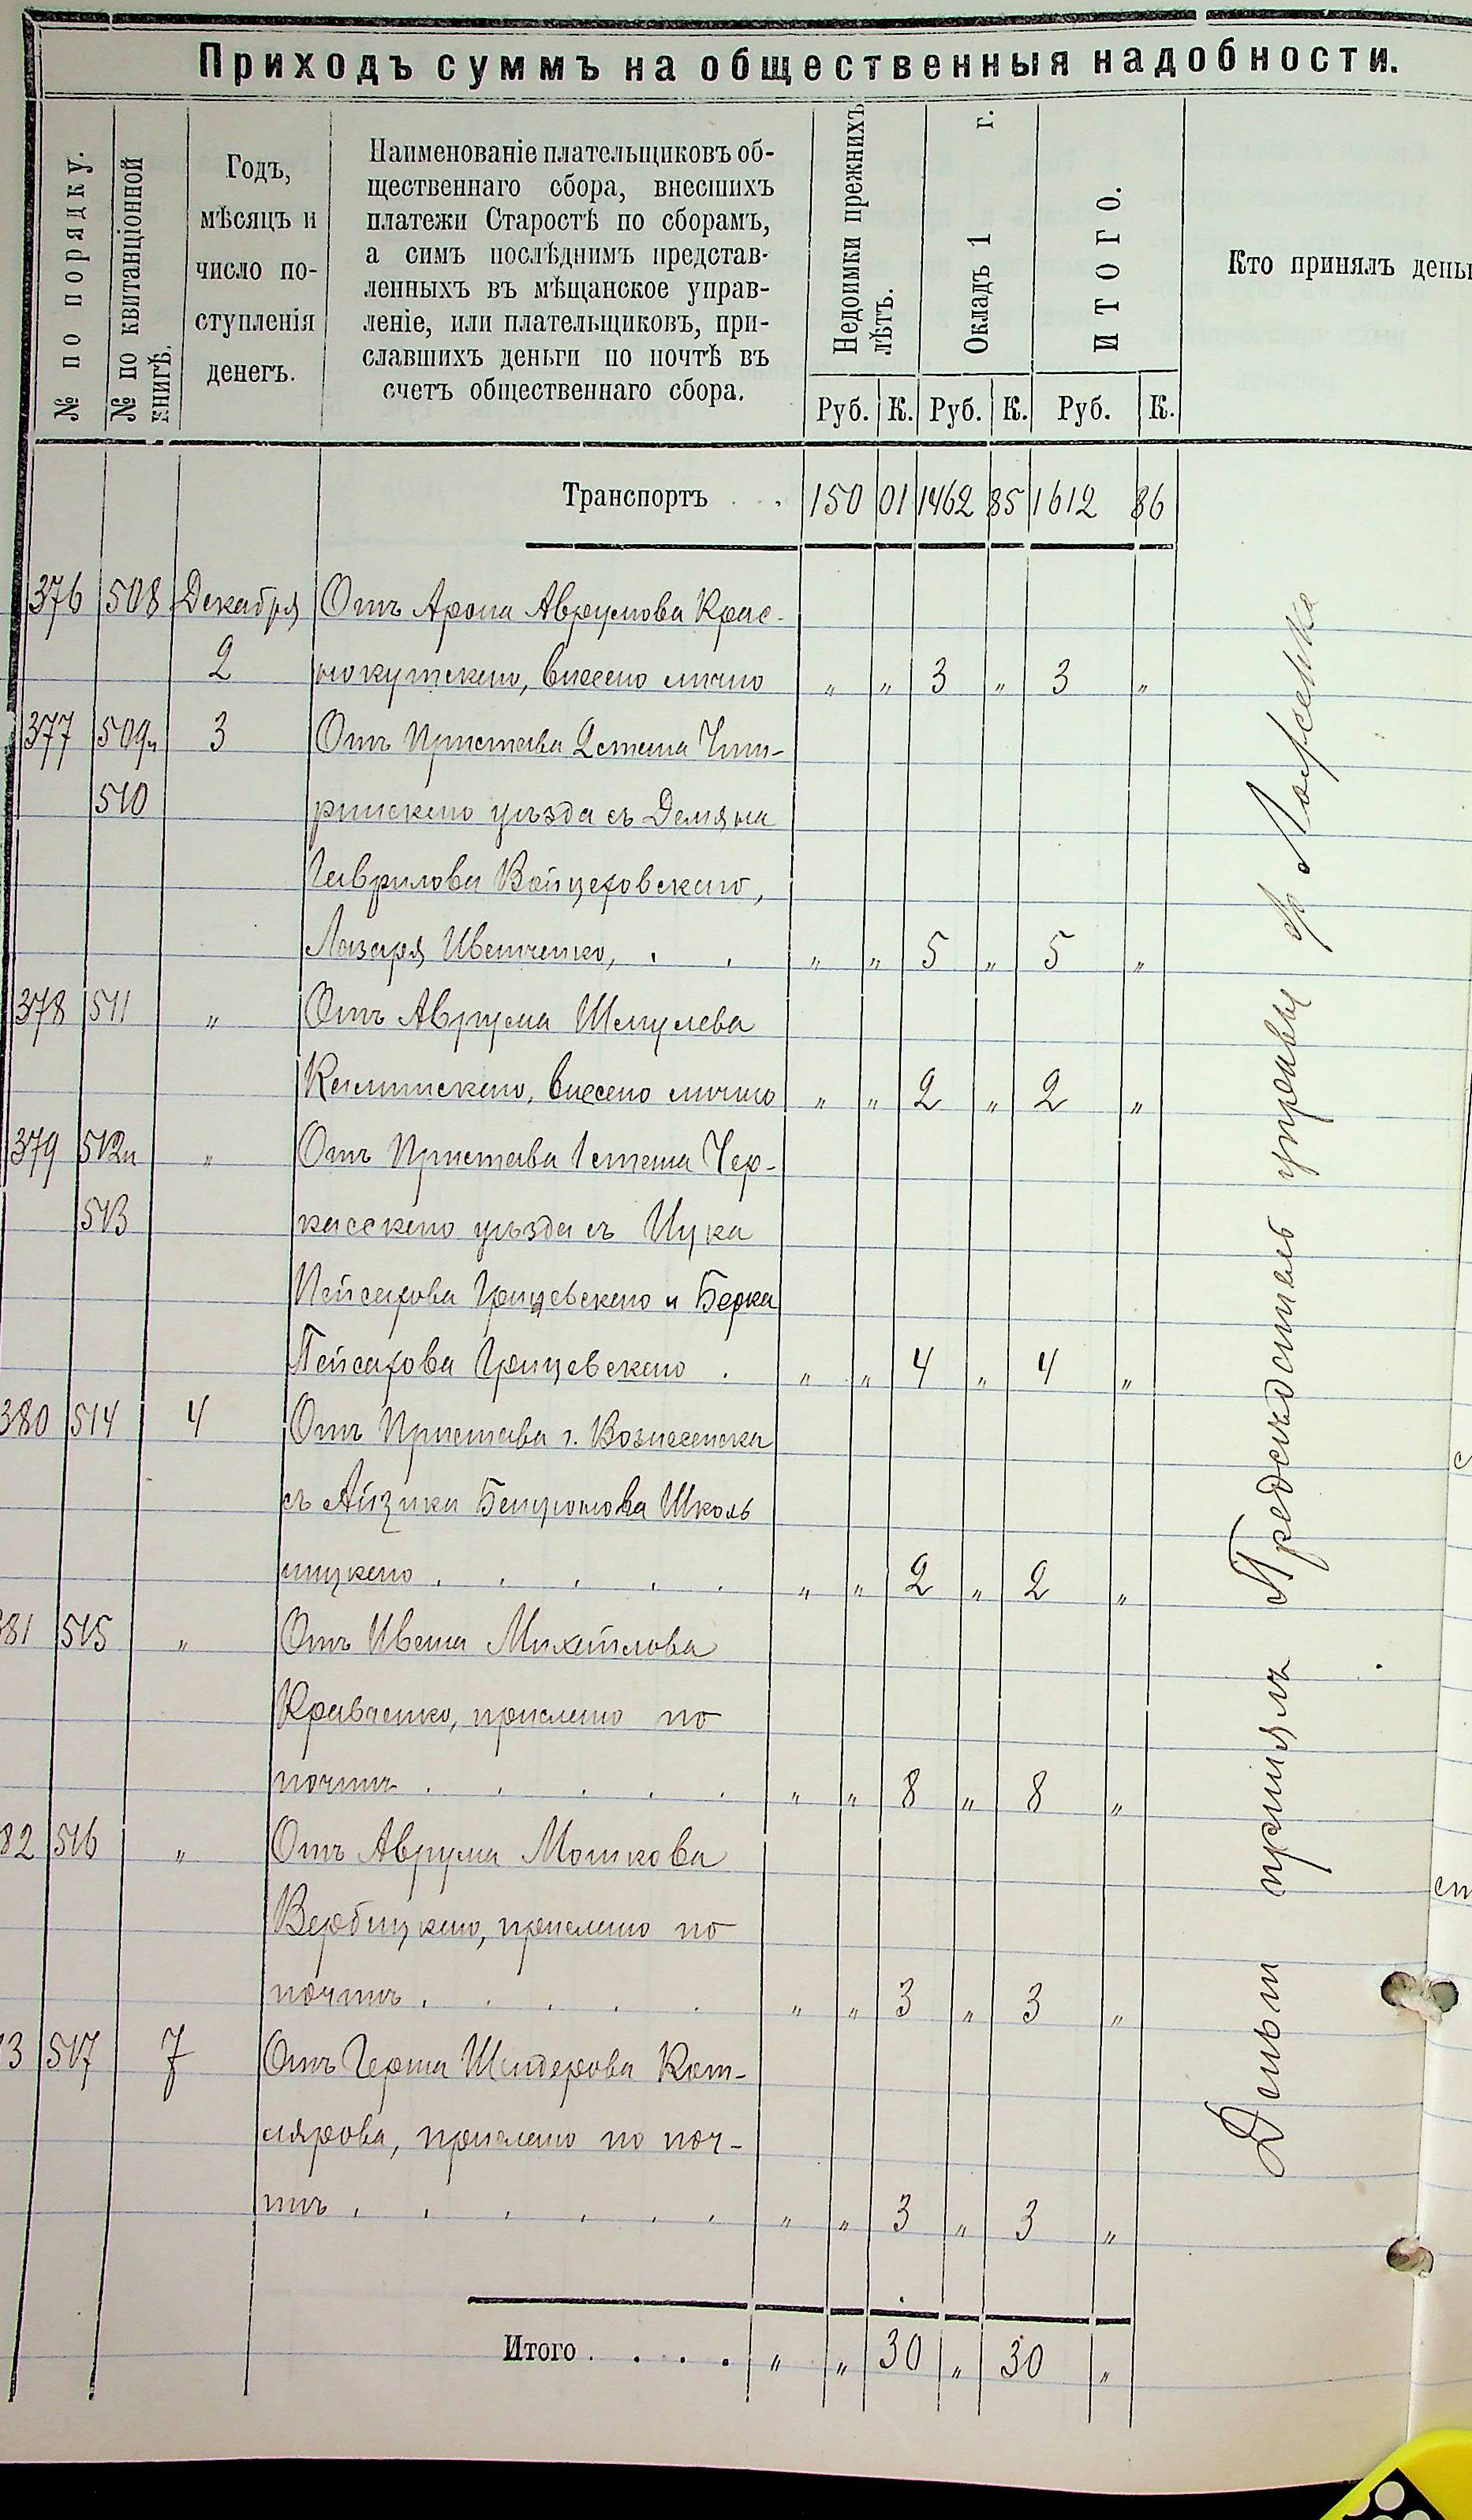 Приходъ суммъ на общественныя надобности.
№ по порядку.
№ по квитанціонной
книгѣ.
Годъ,
мѣсяцъ и
число по-
ступленія
денегъ.
Наименованіе плательщиковъ об-
щественнаго сбора, внесшихъ
платежи Старостѣ по сборамъ,
а симъ послѣднимъ представ-
ленныхъ въ мѣщанское управ-
леніе, или плательщиковъ, при-
славшихъ деньги по почтѣ въ
счетъ общественнаго сбора.
Недоимки прежнихъ
лѣтъ.
Окладъ 1 г.
ИТОГО.
Руб. К. Руб. К. Руб. К.
Кто принялъ день
Транспортъ . . 150 01 1462 85 1612 86
376 508 Декабря Отъ Арона Аврумова Крас-
2 нокутскаго, внесено лично „ „ 3 „ 3 „
377 509и 3 Отъ Пристава 2 стана Чиги-
510 ринскаго уѣзда съ Демяна
Гаврилова Войцеховскаго,
Лазаря Иванченко, . . „ „ 5 „ 5 „
378 511 „ Отъ Аврума Шмулева
Калинскаго, внесено лично „ „ 2 „ 2 „
379 512и „ Отъ Пристава 1 стана Чер-
513 касскаго уѣзда съ Ицка
Пейсахова Грицевскаго и Берка
Пейсахова Грицевскаго . „ „ 4 „ 4 „
380 514 4 Отъ Пристава г. Вознесенска
съ Айзика Школь
ницкаго . . . . . „ „ 2 „ 2 „
81 515 „ Отъ Ивана Михайлова
Кравченко, прислано по
почтѣ . . . . . „ „ 8 „ 8 „
82 516 „ Отъ Аврума Мошкова
Вербицкаго, прислано по
почтѣ . . . . . „ „ 3 „ 3 „
3 517 7 Отъ Герша Шендерова Кот-
лярова, прислано по поч-
тѣ . . . . . . „ „ 3 „ 3 „
Итого . . . . . „ „ 30 „ 30 „
Деньги принялъ Предсѣдатель управы